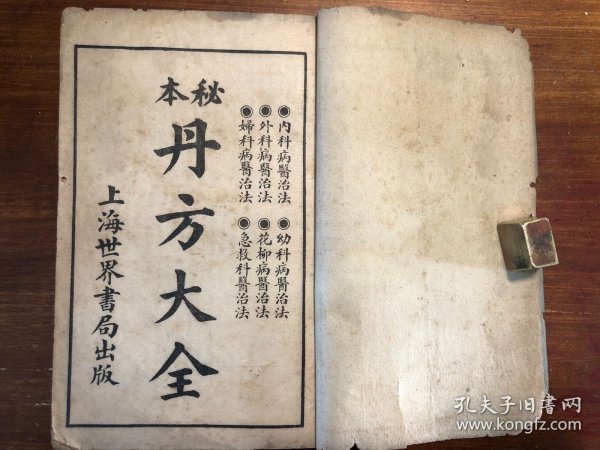 ◉内科病醫治法
◉外科病醫治法
◉婦科病醫治法
◉幼科病醫治法
◉花柳病醫治法
◉急救科醫治法
秘本
丹方大全
上海世界書局出版
孔夫子旧書网
www.kongfz.com